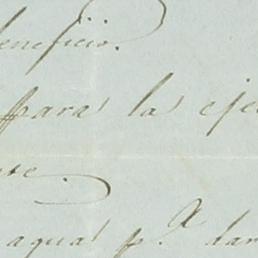 beneficio.
para la eje
te.
aqua p.ª dar